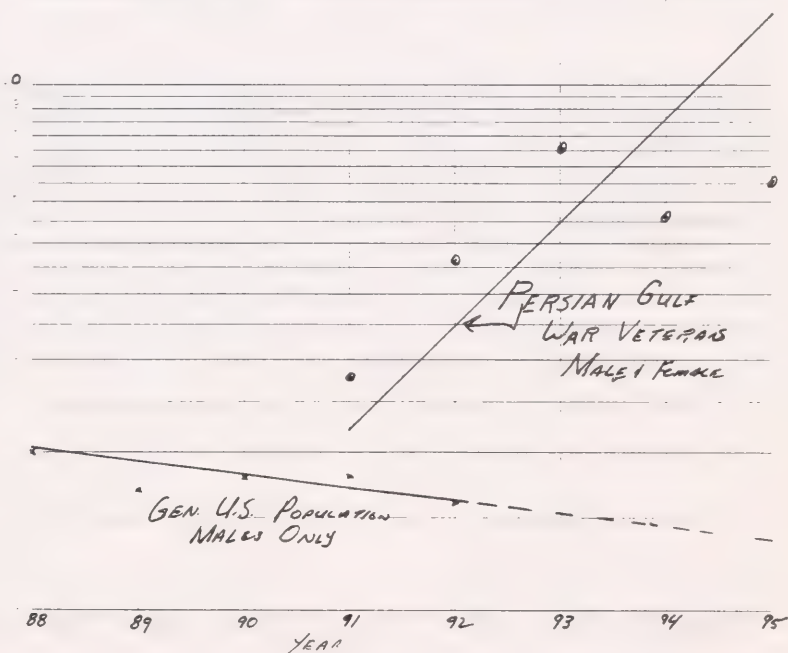 .0
PERSIAN GULF
WAR VETERANS
MALE & FEMALE
GEN. U.S. POPULATION
MALES ONLY
88 89 90 91 92 93 94 95
YEAR